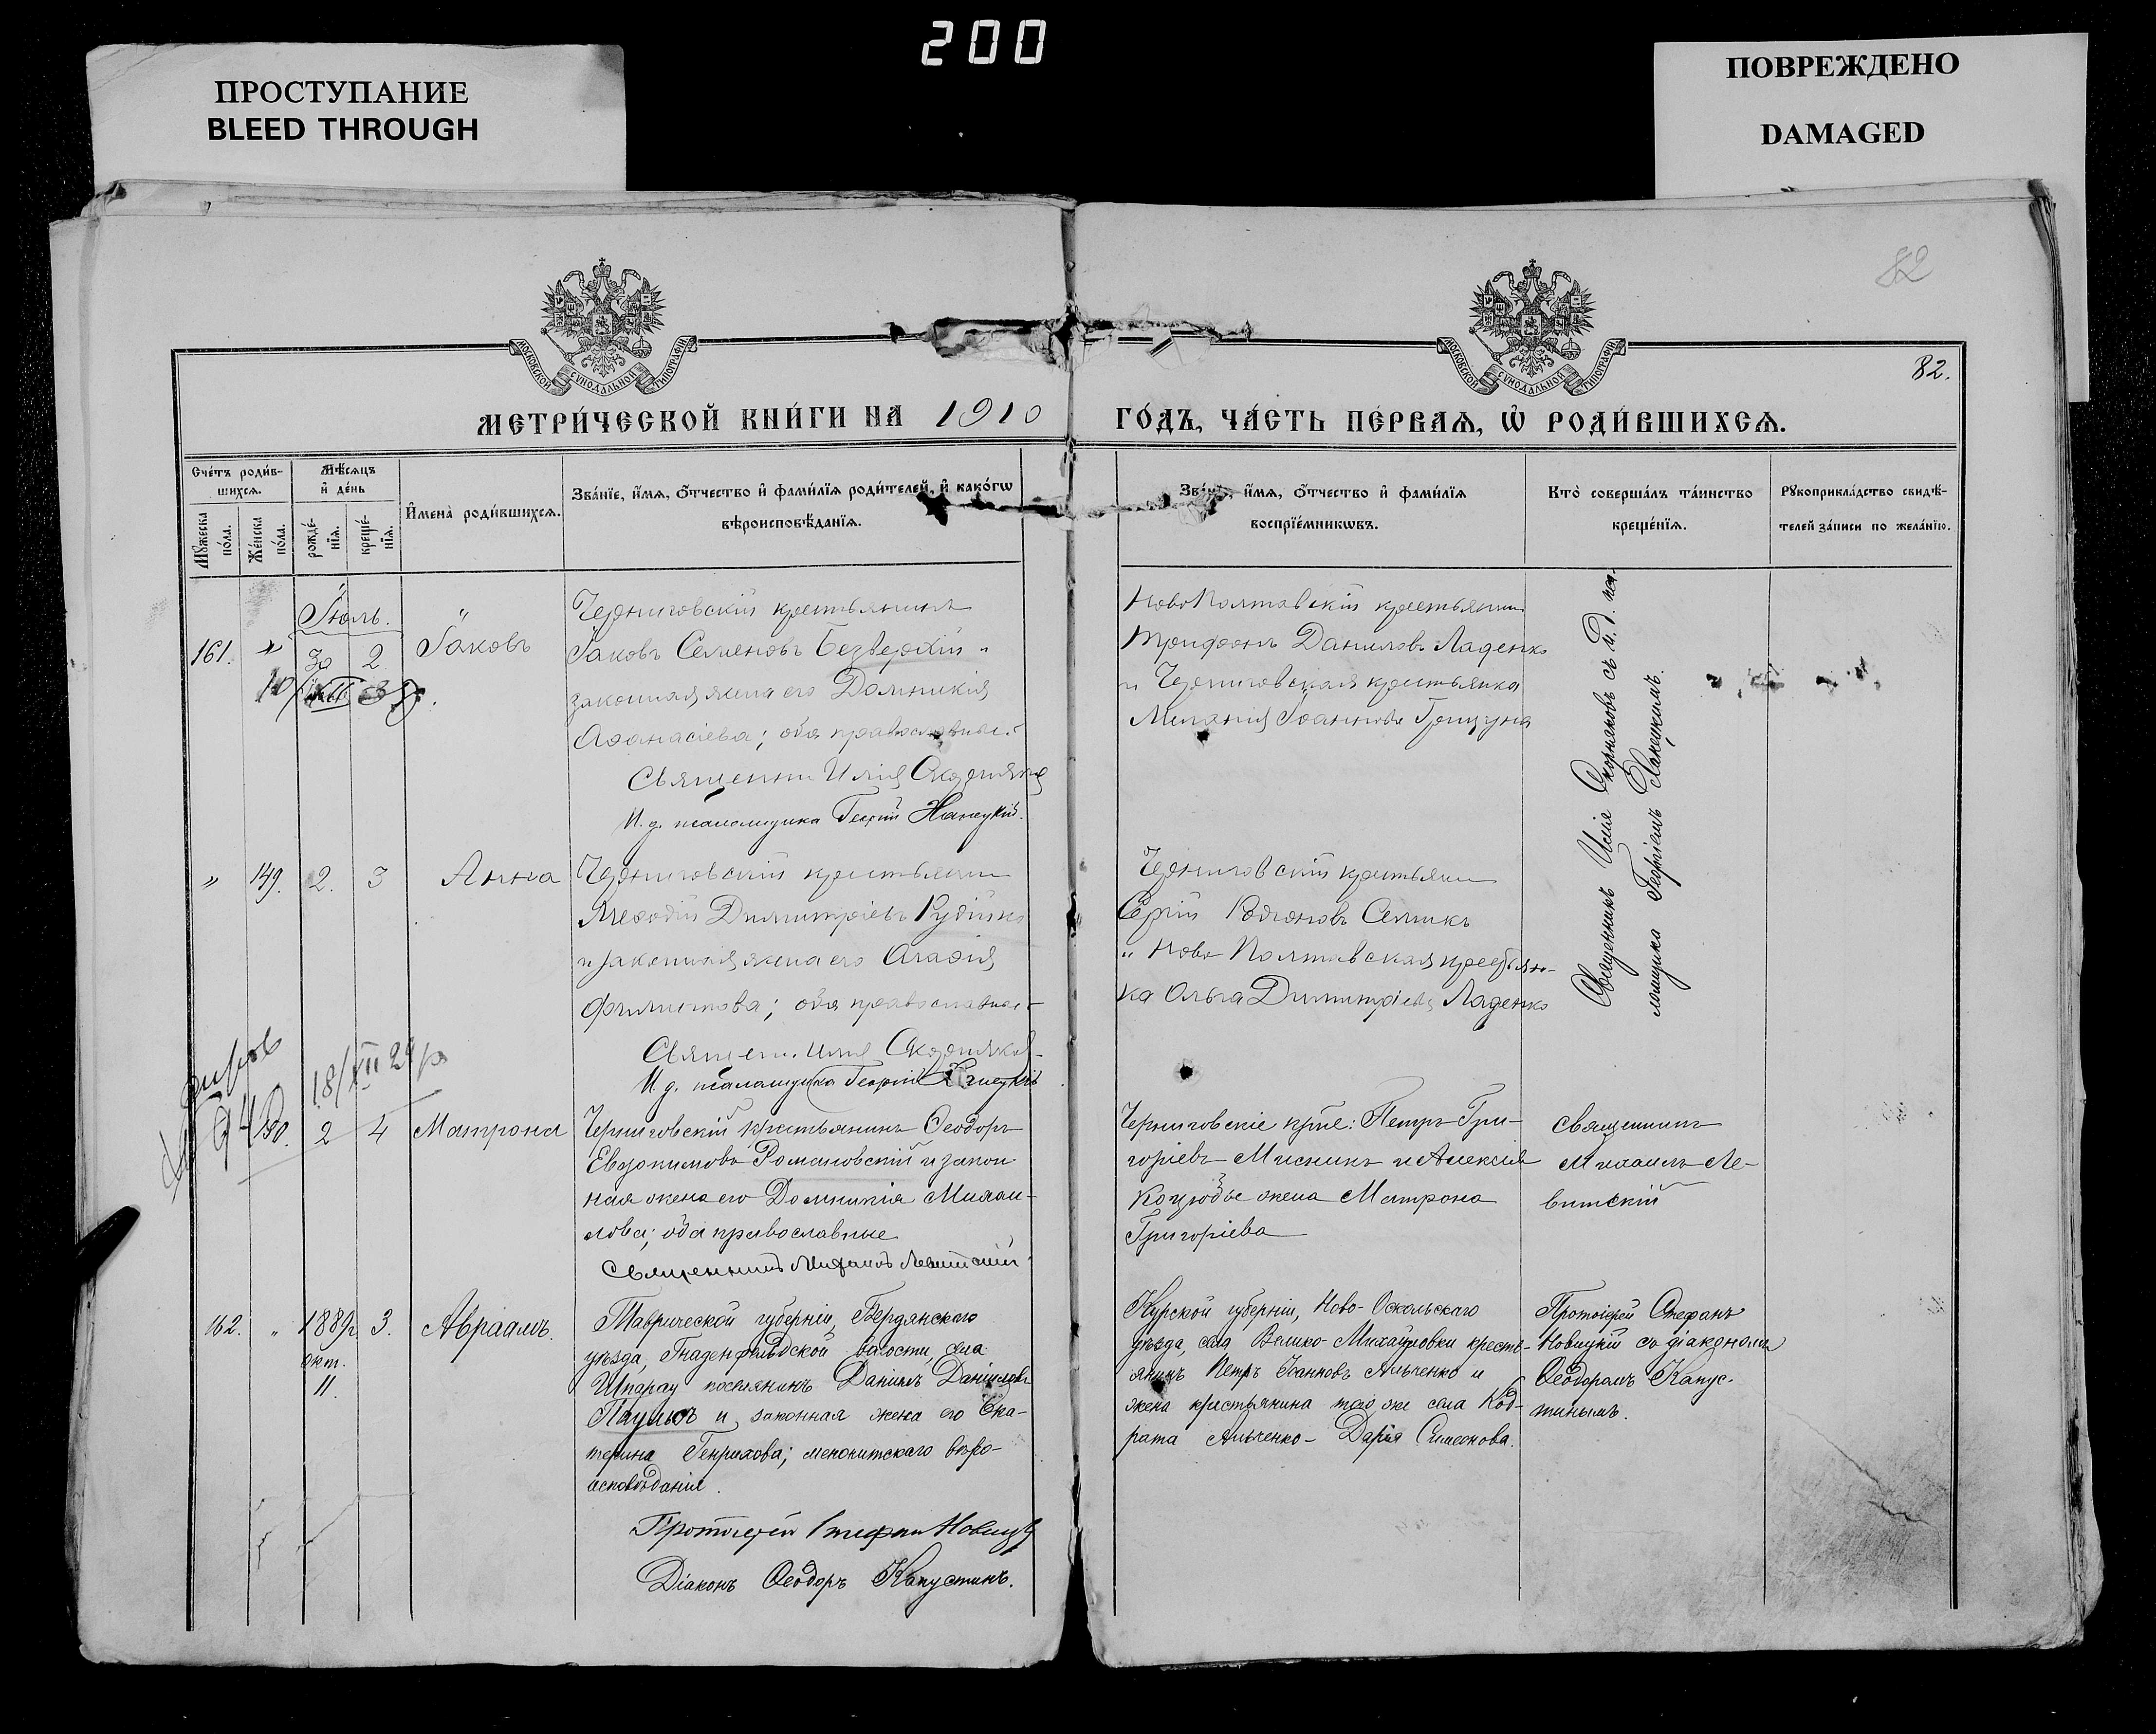 200
ПРОСТУПАНИЕ
BLEED THROUGH
ПОВРЕЖДЕНО
DAMAGED
82
82.
МОСКОВСКОЙ СѴНОДАЛЬНОЙ ТИПОГРАФІИ
МОСКОВСКОЙ СѴНОДАЛЬНОЙ ТИПОГРАФІИ
МЕТРИ́ЧЕСКОЙ КНИ́ГИ НА 1910 ГО́ДЪ, ЧА́СТЬ ПЕ́РВАѦ, Ѽ РОДИ́ВШИХСѦ.
Сче́тъ роди́в-
шихся.
Мꙋ́жеска по́ла.
Же́нска по́ла.
Мѣ́сяцъ
и҆ де́нь
рожде́-
нїя.
креще́-
нїя.
И҆мена̀ роди́вшихся.
Зва́нїе, и҆́мя, ѻ҆́тчество и҆ фами́лїя роди́телей, и҆ како́гѡ
вѣроисповѣ́данїя.
Зва́нїе, и҆́мя, ѻ҆́тчество и҆ фами́лїя
воспрїе́мникѡвъ.
Кто̀ соверша́лъ та́инство
креще́нїя.
Рꙋкоприкла́дство свидѣ́-
телей за́писи по жела́нїю.
Іюль.
161. " 30 2 Іаковъ
Черниговскій крестьянинъ
Іаковъ Семеновъ Безверхій и
законная жена его Домникія
Аѳанасіева; оба православные.
Священн. Илія Скорняковъ
И. д. псаломщика Георгій Ханецкій.
Ново Полтавскій крестьянин
Трифонъ Даниловъ Ладенко
и Черниговская крестьянка
Меланія Іоаннова Грицуна
Священникъ Илія Скорняковъ съ и. д. пса-
ломщика Георгіемъ Ханецкимъ.
" 149. 2. 3 Анна
Черниговскій крестьянин
Меѳодій Димитріевъ Рудійко
и законная жена его Агаѳія
Филиппова; оба православные
Священ. Илія Скорняков
И. д. псаломщика Георгій Ханецкій
Черниговскій крестьянин
Сергій Родіоновъ Семикъ
и Ново Полтавская крестьян-
ка Ольга Димитріева Ладенко
18/XII 24 р
150. 2 4 Матрона
Черниговскій крестьянинъ Ѳеодоръ
Евдокимовъ Романовскій и закон
ная жена его Домникія Михаи-
лова; оба православные
Священникъ Михаилъ Левитскій
Черниговскіе крте: Петръ Гри-
горіевъ Мисникъ и Алексія
Коцюбы жена Матрона
Григоріева
Священникъ
Михаилъ Ле-
витскій
162. " 1889г. 3. Авраамъ.
окт.
11.
Таврической губерніи, Бердянскаго
уѣзда, Гнаденфельдской волости, села
Шпарау поселянинъ Даніилъ Даніиловъ
Паульсъ и законная жена его Ека-
терина Генрихова; менонитскаго вѣро-
исповѣданія.
Протоіерей Стефан Новицкій
Діаконъ Ѳеодоръ Капустинъ.
Курской губерніи, Ново-Оскольскаго
уѣзда, села Велико-Михайловки кресть-
янинъ Петръ Іоанновъ Ильченко и
жена крестьянина того же села Код-
рата Ильченко - Дарія Симеонова.
Протоіерей Стефанъ
Новицкій съ діакономъ
Ѳеодоромъ Капус-
тинымъ.